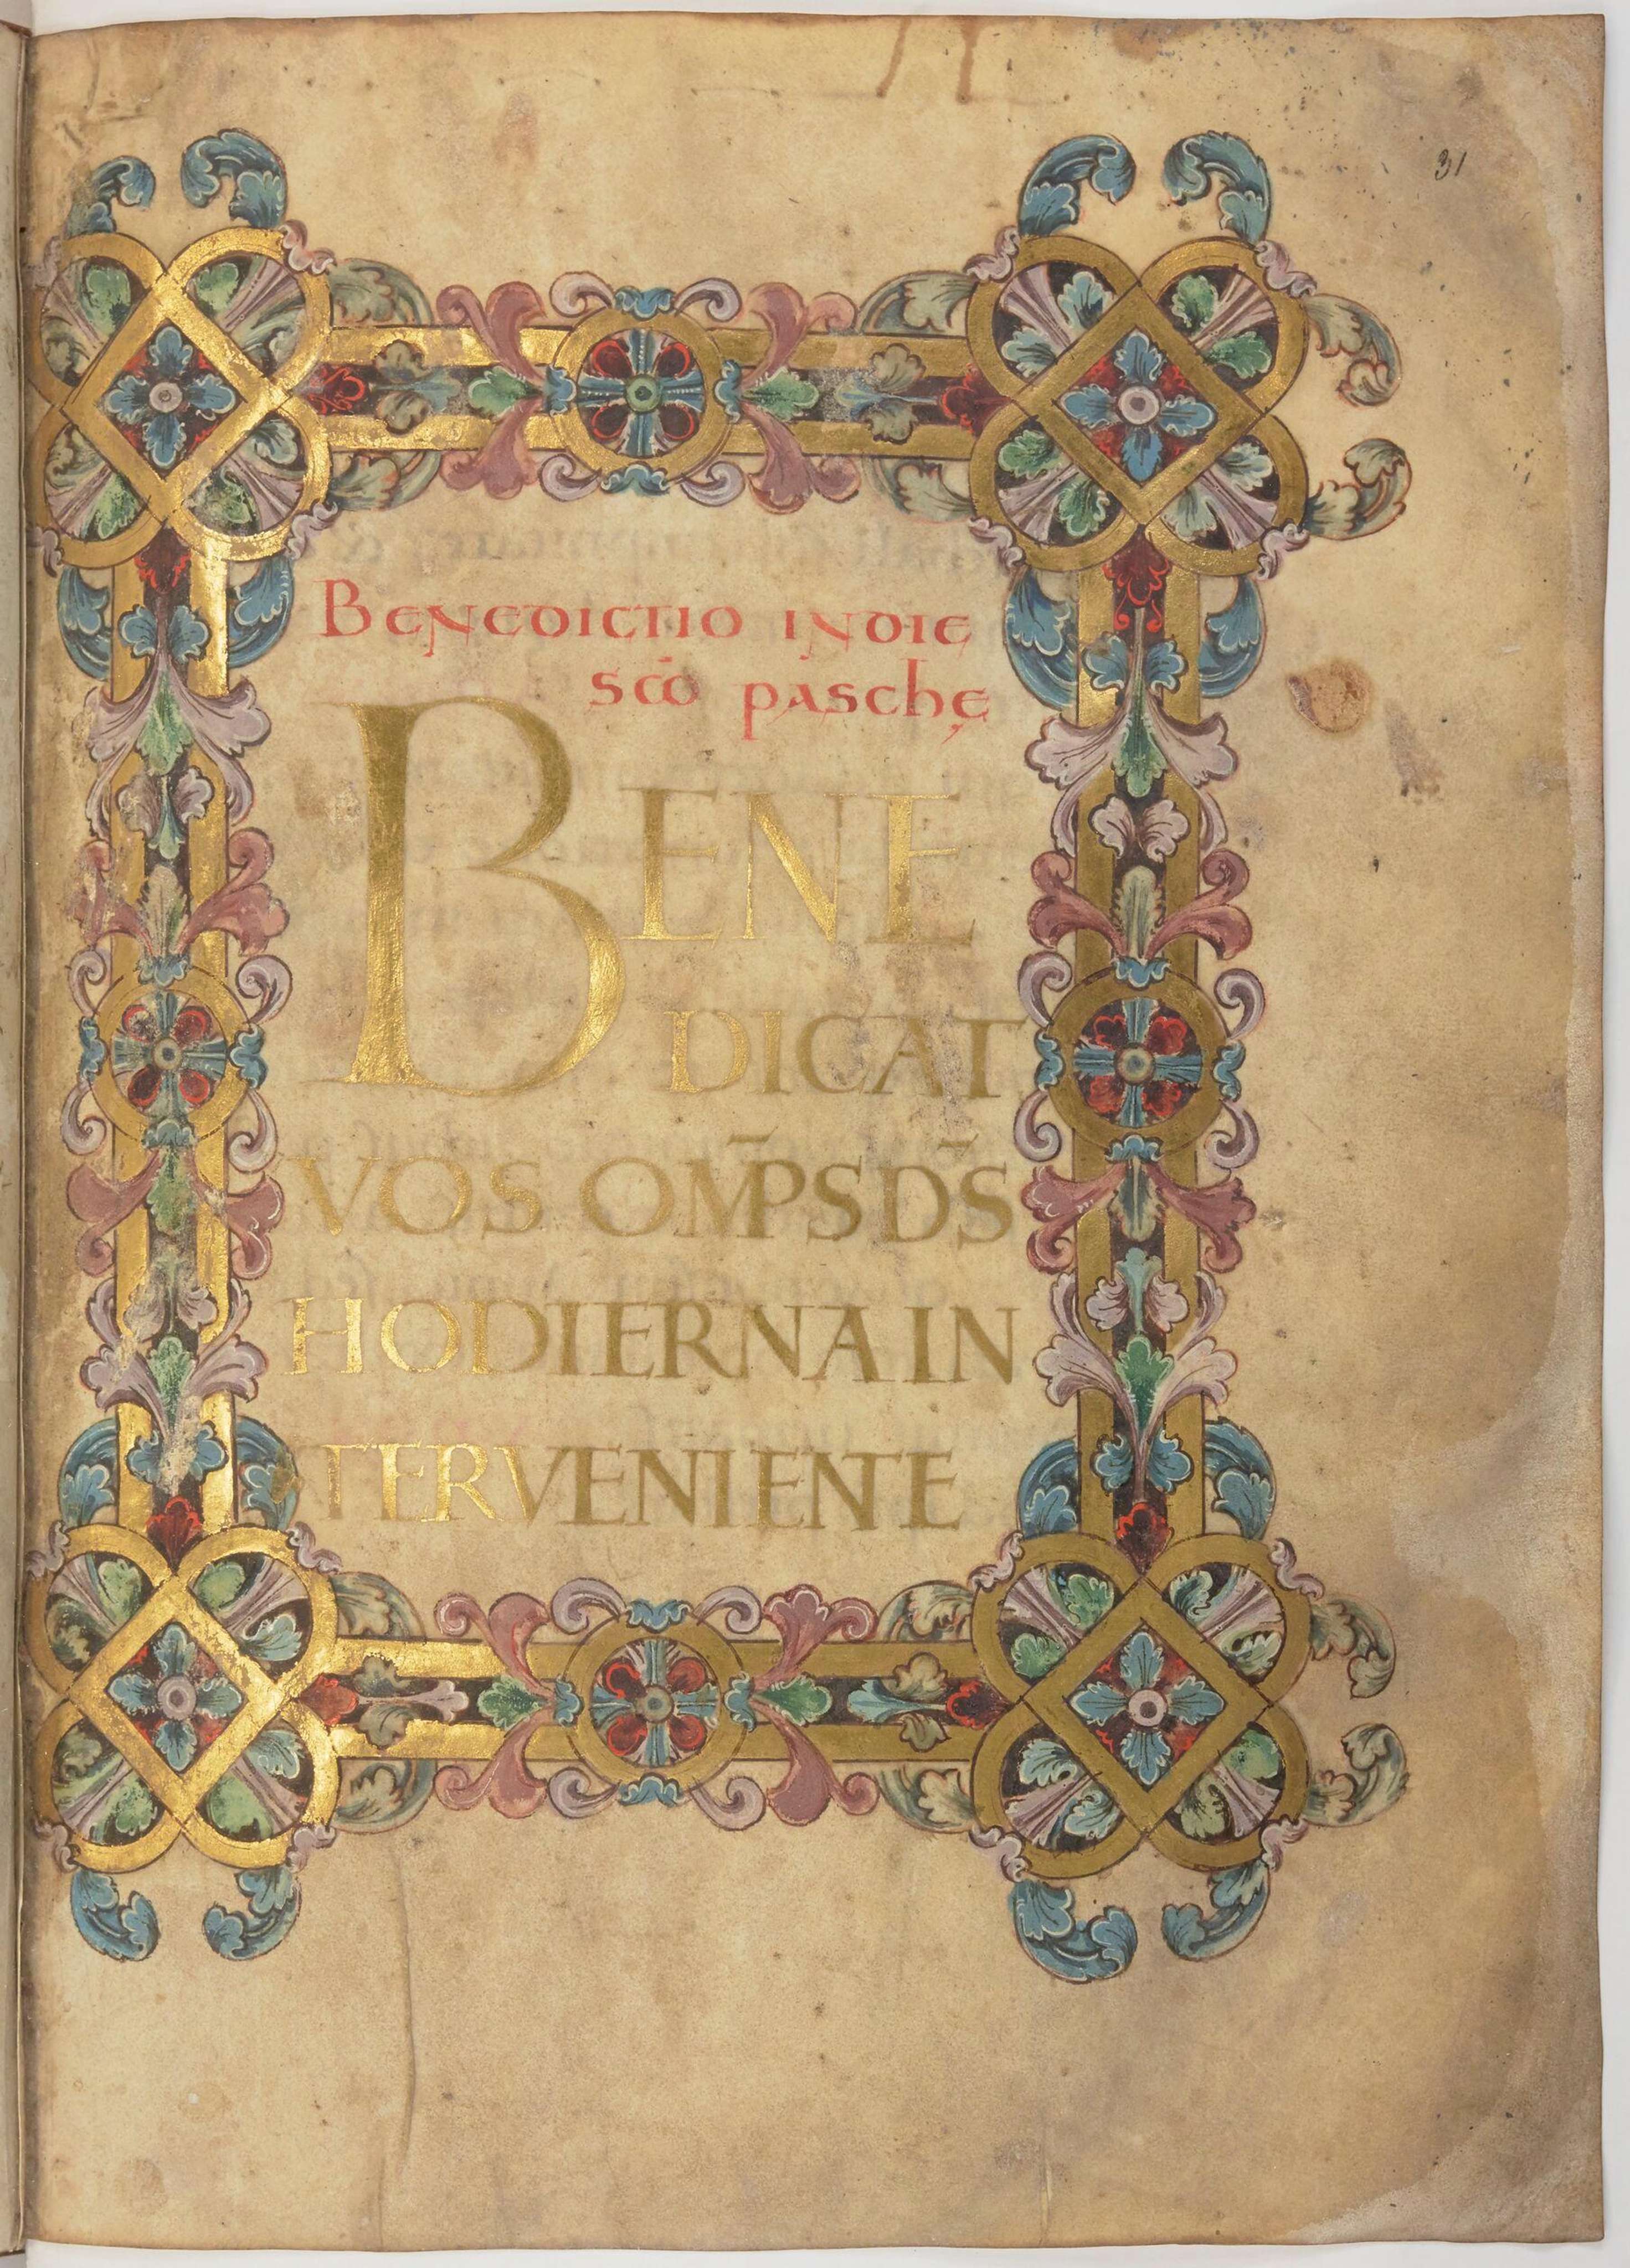 31
Benedictio indie
sc̄o paschę
BENE
DICAT
VOS OM̄PSD̄S
HODIERNA IN
TERVENIENTE